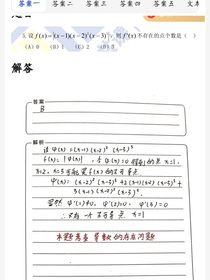 答案一 答案二 答案三 答案四 答案五 文本
5. 设 f(x)=|(x-1)(x-2)²(x-3)³|, 则 f'(x) 不存在的点个数是 ( )
(A) 0 (B) 1 (C) 2 (D) 3
解答
答案
B
解析
设 φ(x)=(x-1)(x-2)²(x-3)³
f(x)=|φ(x)|, 使 φ(x)=0 的点 x=1,
x=2, x=3 可能是 f(x) 的不可导点
φ'(x)=(x-2)²(x-3)³+2(x-1)(x-2)(x-3)³+
3(x-1)(x-2)²(x-3)²
显然 φ'(1)≠0, φ'(2)=0, φ'(3)=0
∴只有一个不可导点 x=1
本题考查 导数的存在问题